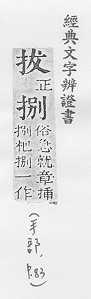 經典文字辨證書
拔正捌俗急就章捅
捌杷捌一作
(手部, p.83)